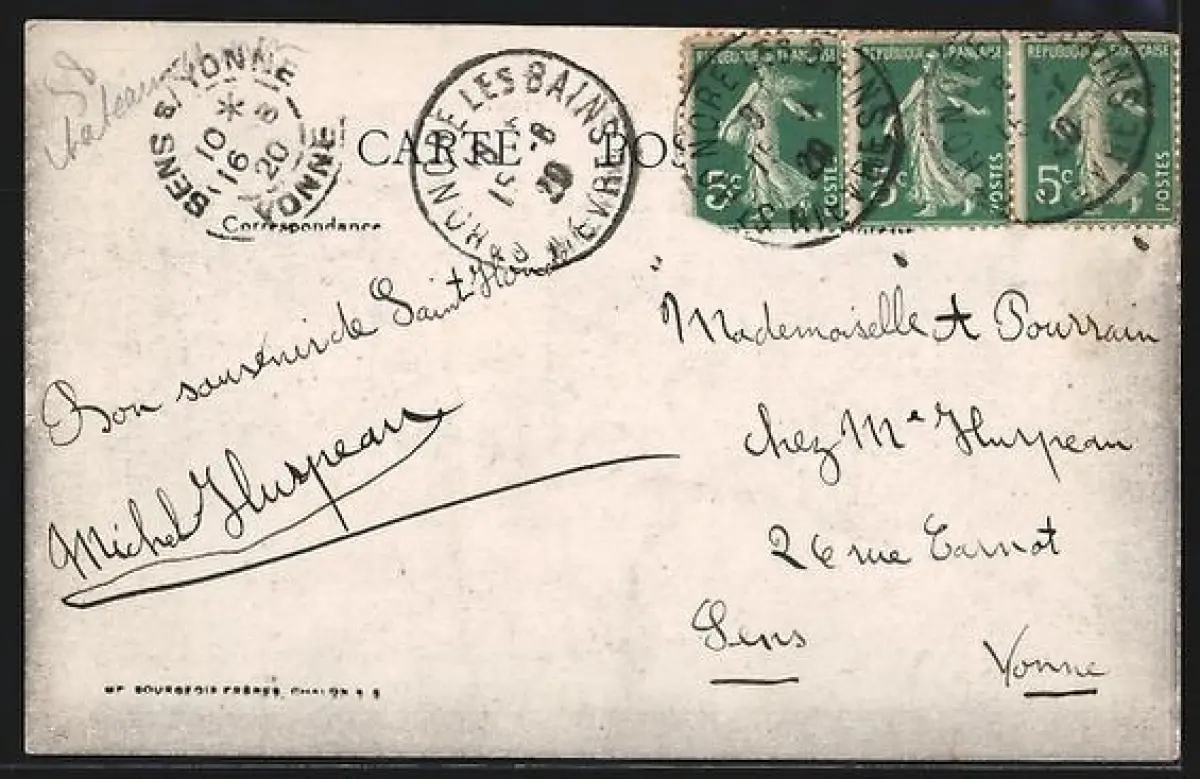 SENS S/ YONNE
10 * 8
16 20
YONNE
ST HONORE LES BAINS
15 - 8
20
NIÈVRE
CARTE POS
REPUBLIQUE FRANÇAISE
5c POSTES
REPUBLIQUE FRANÇAISE
5c POSTES
REPUBLIQUE FRANÇAISE
5c POSTES
Correspondance
Bon souvenir de Saint Honoré
Michel Hurpeau
Mademoiselle A Pourrain
chez Me Hurpeau
26 rue Carnot
Sens Yonne
BOURGEOIS FRÈRES, CHALON S S